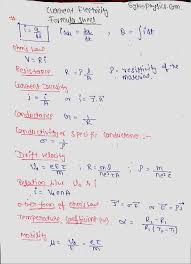 Current Electricity
Formula sheet
Sykophysics.Com
i = q/t   i av = Δq/Δt   q = ∫ i dt
Ohm's Law
V = Ri
Resistance   R = ρ l/A   ρ = resistivity of the material.
Current Density
J = i/A   or i = J⃗ . A⃗
Conductance   G = 1/R
Conductivity or specific conductance :-
σ = 1/ρ
Drift velocity
Vd = eEτ/m ; R = ml/ne²τA ; ρ = m/ne²τ
Relation b/w Vd & i
i = Vd e n A
other form of Ohm's law   J⃗ = σE⃗   or   E⃗ = ρJ⃗
Temperature coefficient (α)   α = R₂ - R₁ / R₁(T₂ - T₁)
Mobility
μ = Vd/E = eτ/m